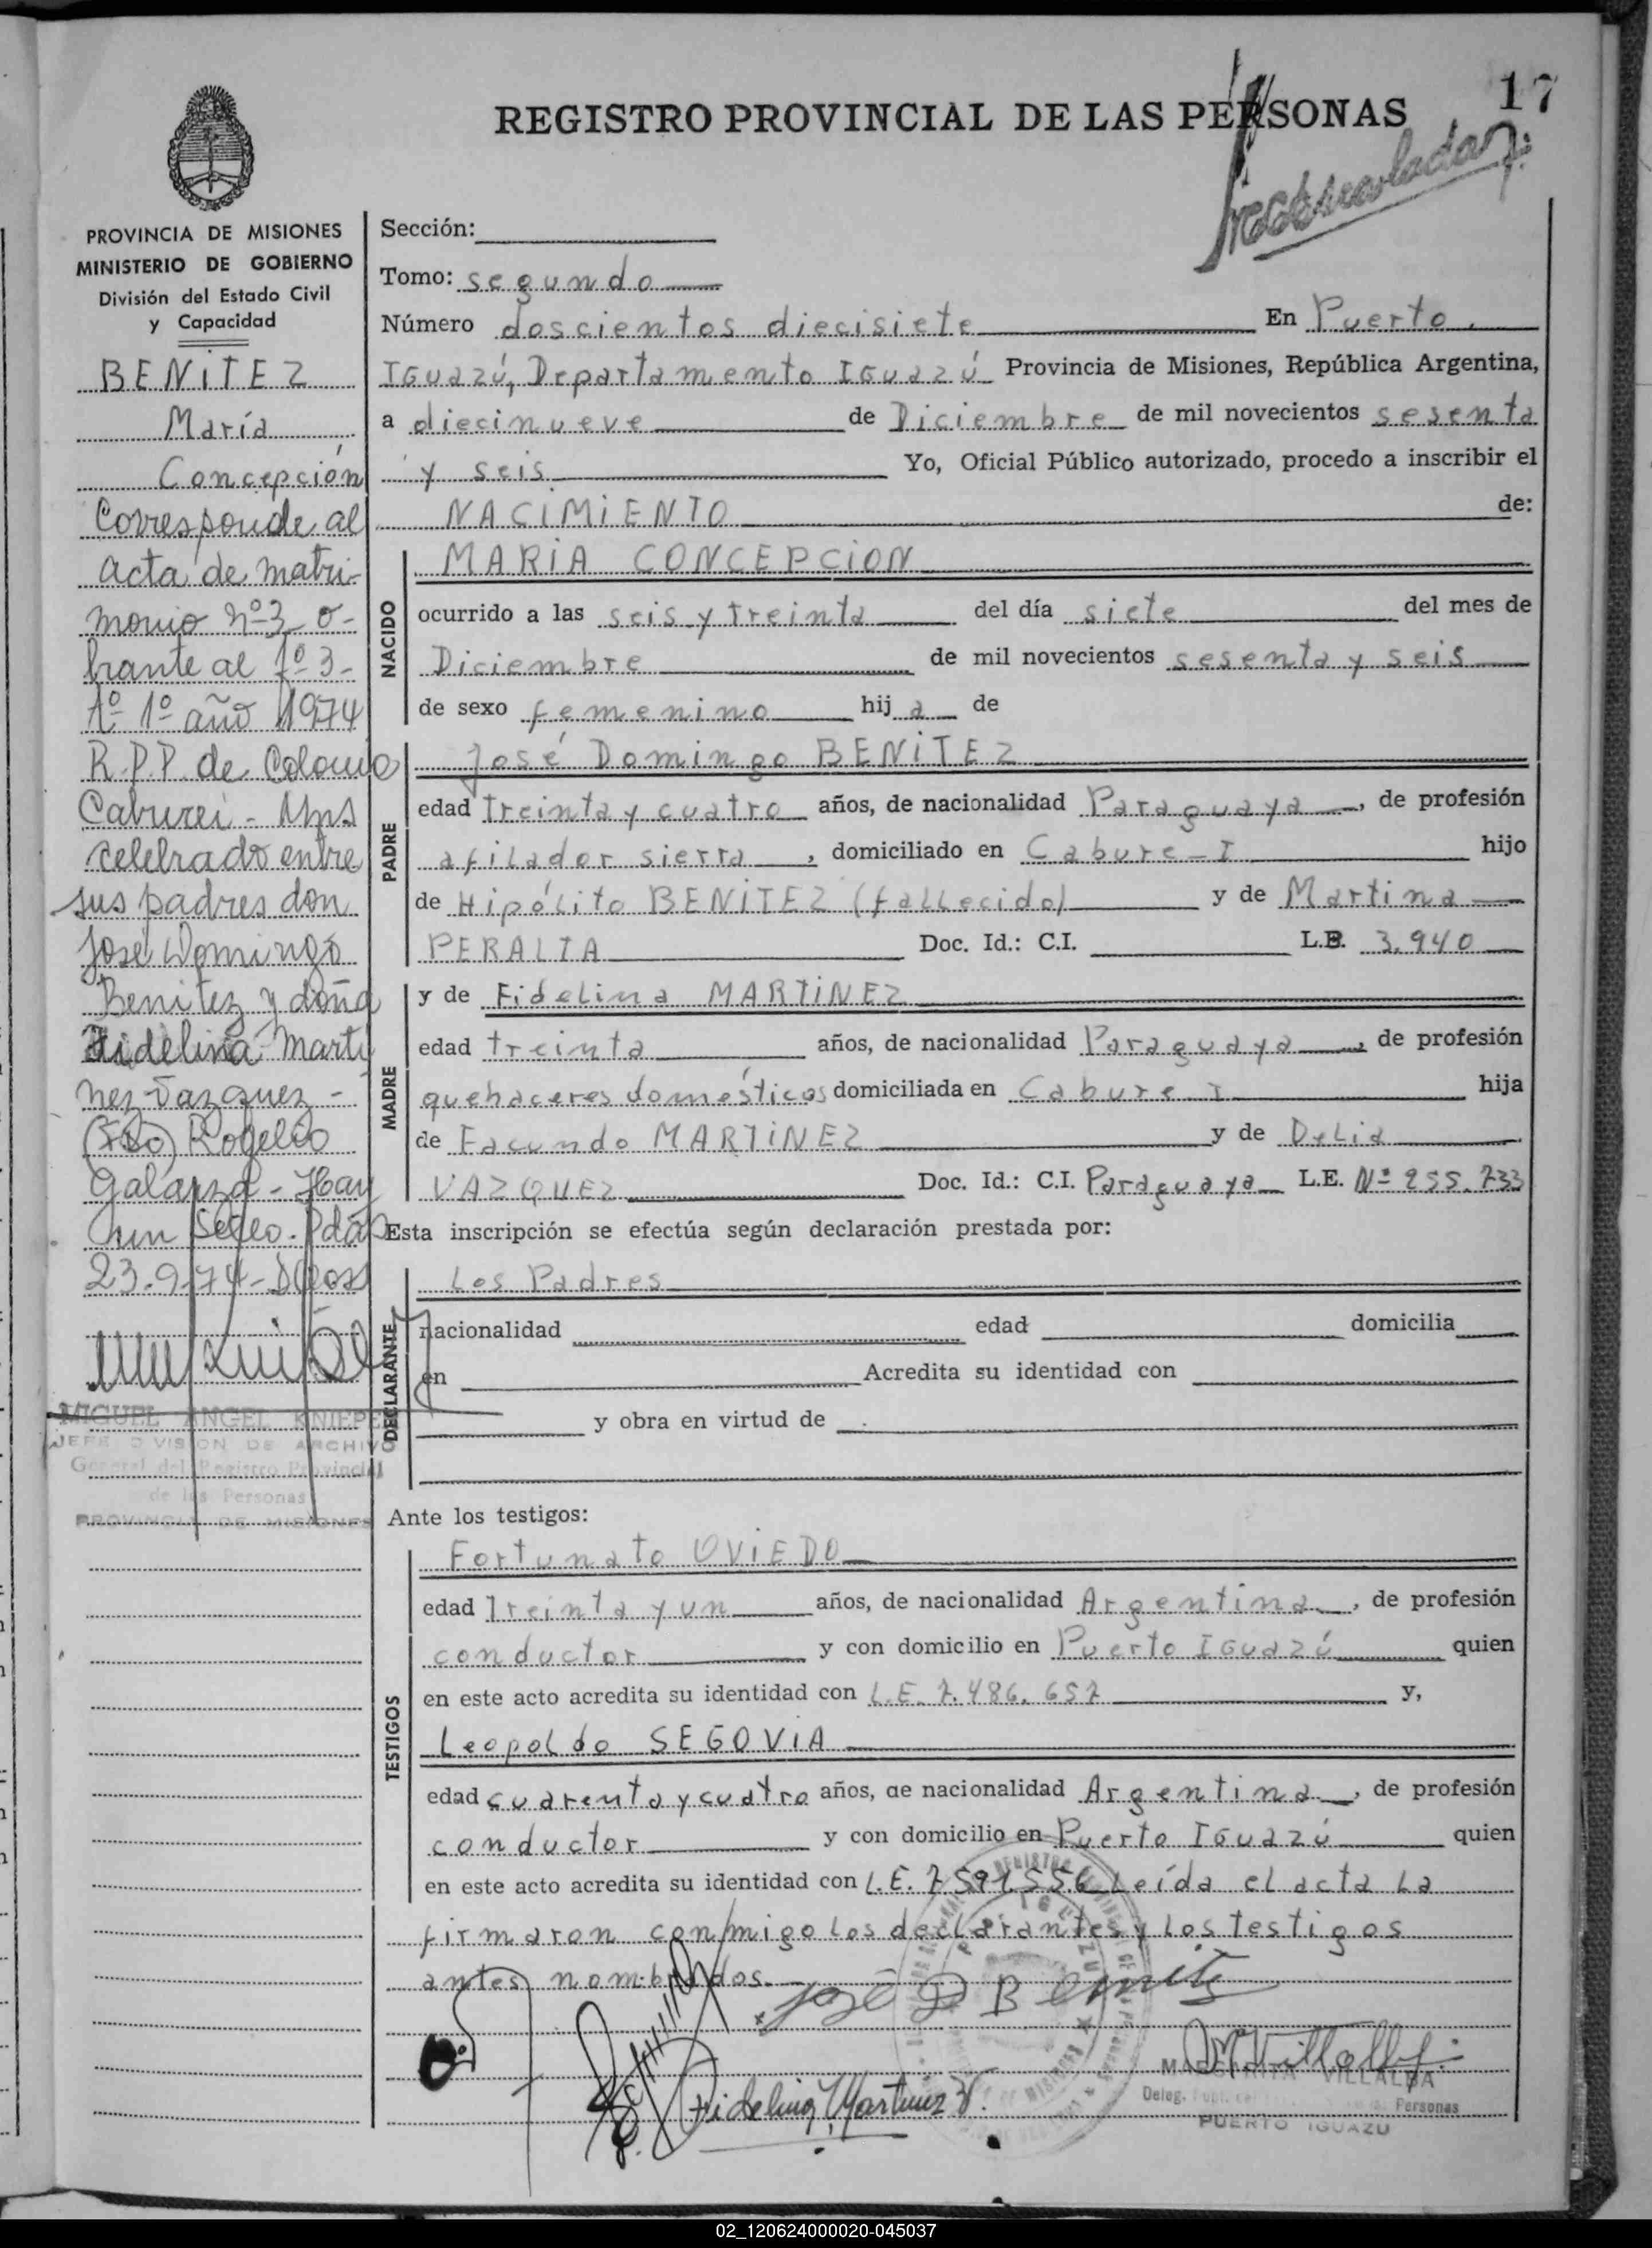 17
REGISTRO PROVINCIAL DE LAS PERSONAS
PROVINCIA DE MISIONES
MINISTERIO DE GOBIERNO
División del Estado Civil
y Capacidad
BENiTEZ
María
Concepción
Corresponde al
acta de matri-
monio nº 3 o-
brante al fº 3-
Tº 1º año 1974
R.P.P. de Colonia
Caburei - Mns
celebrado entre
sus padres don
José Domingo
Benitez y doña
Fidelina Marti
nez Vazquez -
(Fdo) Rogelio
Galarza - Hay
un Sello. Pdas
23.9.74-
MIGUEL ANGEL KNIEPE
JEFE DIVISION DE ARCHIVO
General del Registro Provincial
de las Personas
PROVINCIA DE MISIONES
Sección:
Tomo: segundo
Número doscientos diecisiete En Puerto
IGuazú, Departamento IGuazú Provincia de Misiones, República Argentina,
a diecinueve de Diciembre de mil novecientos sesenta
y seis Yo, Oficial Público autorizado, procedo a inscribir el
NACiMiENTO de:
NACIDO
MARiA CONCEPCiON
ocurrido a las seis y treinta del día siete del mes de
Diciembre de mil novecientos sesenta y seis
de sexo femenino hij a de
PADRE
José Domingo BENiTEZ
edad treinta y cuatro años, de nacionalidad Paraguaya, de profesión
afilador sierra, domiciliado en Cabure-I hijo
de Hipólito BENiTEZ (fallecido) y de Martina
PERALTA Doc. Id.: C.I. L.E. 3.940
MADRE
y de Fidelina MARTiNEZ
edad treinta años, de nacionalidad Paraguaya, de profesión
quehaceres domésticos domiciliada en Cabure I hija
de Facundo MARTiNEZ y de Delia
VAZQUEZ Doc. Id.: C.I. Paraguaya L.E. Nº 255.733
Esta inscripción se efectúa según declaración prestada por:
DECLARANTE
Los Padres
nacionalidad edad domicilia
en Acredita su identidad con
y obra en virtud de
Ante los testigos:
TESTIGOS
Fortunato OViEDO
edad Treinta y un años, de nacionalidad Argentina, de profesión
conductor y con domicilio en Puerto IGuazú quien
en este acto acredita su identidad con L.E. 7.486.657 y,
Leopoldo SEGOViA
edad cuarenta y cuatro años, de nacionalidad Argentina, de profesión
conductor y con domicilio en Puerto IGuazú quien
en este acto acredita su identidad con L.E. 7.591.556 Leída el acta la
firmaron conmigo los declarantes y los testigos
antes nombrados.
José D Benitez
Fidelina Martinez V.
M Villalba
MARGARITA VILLALBA
Deleg. Personas
PUERTO IGUAZU
02_120624000020-045037